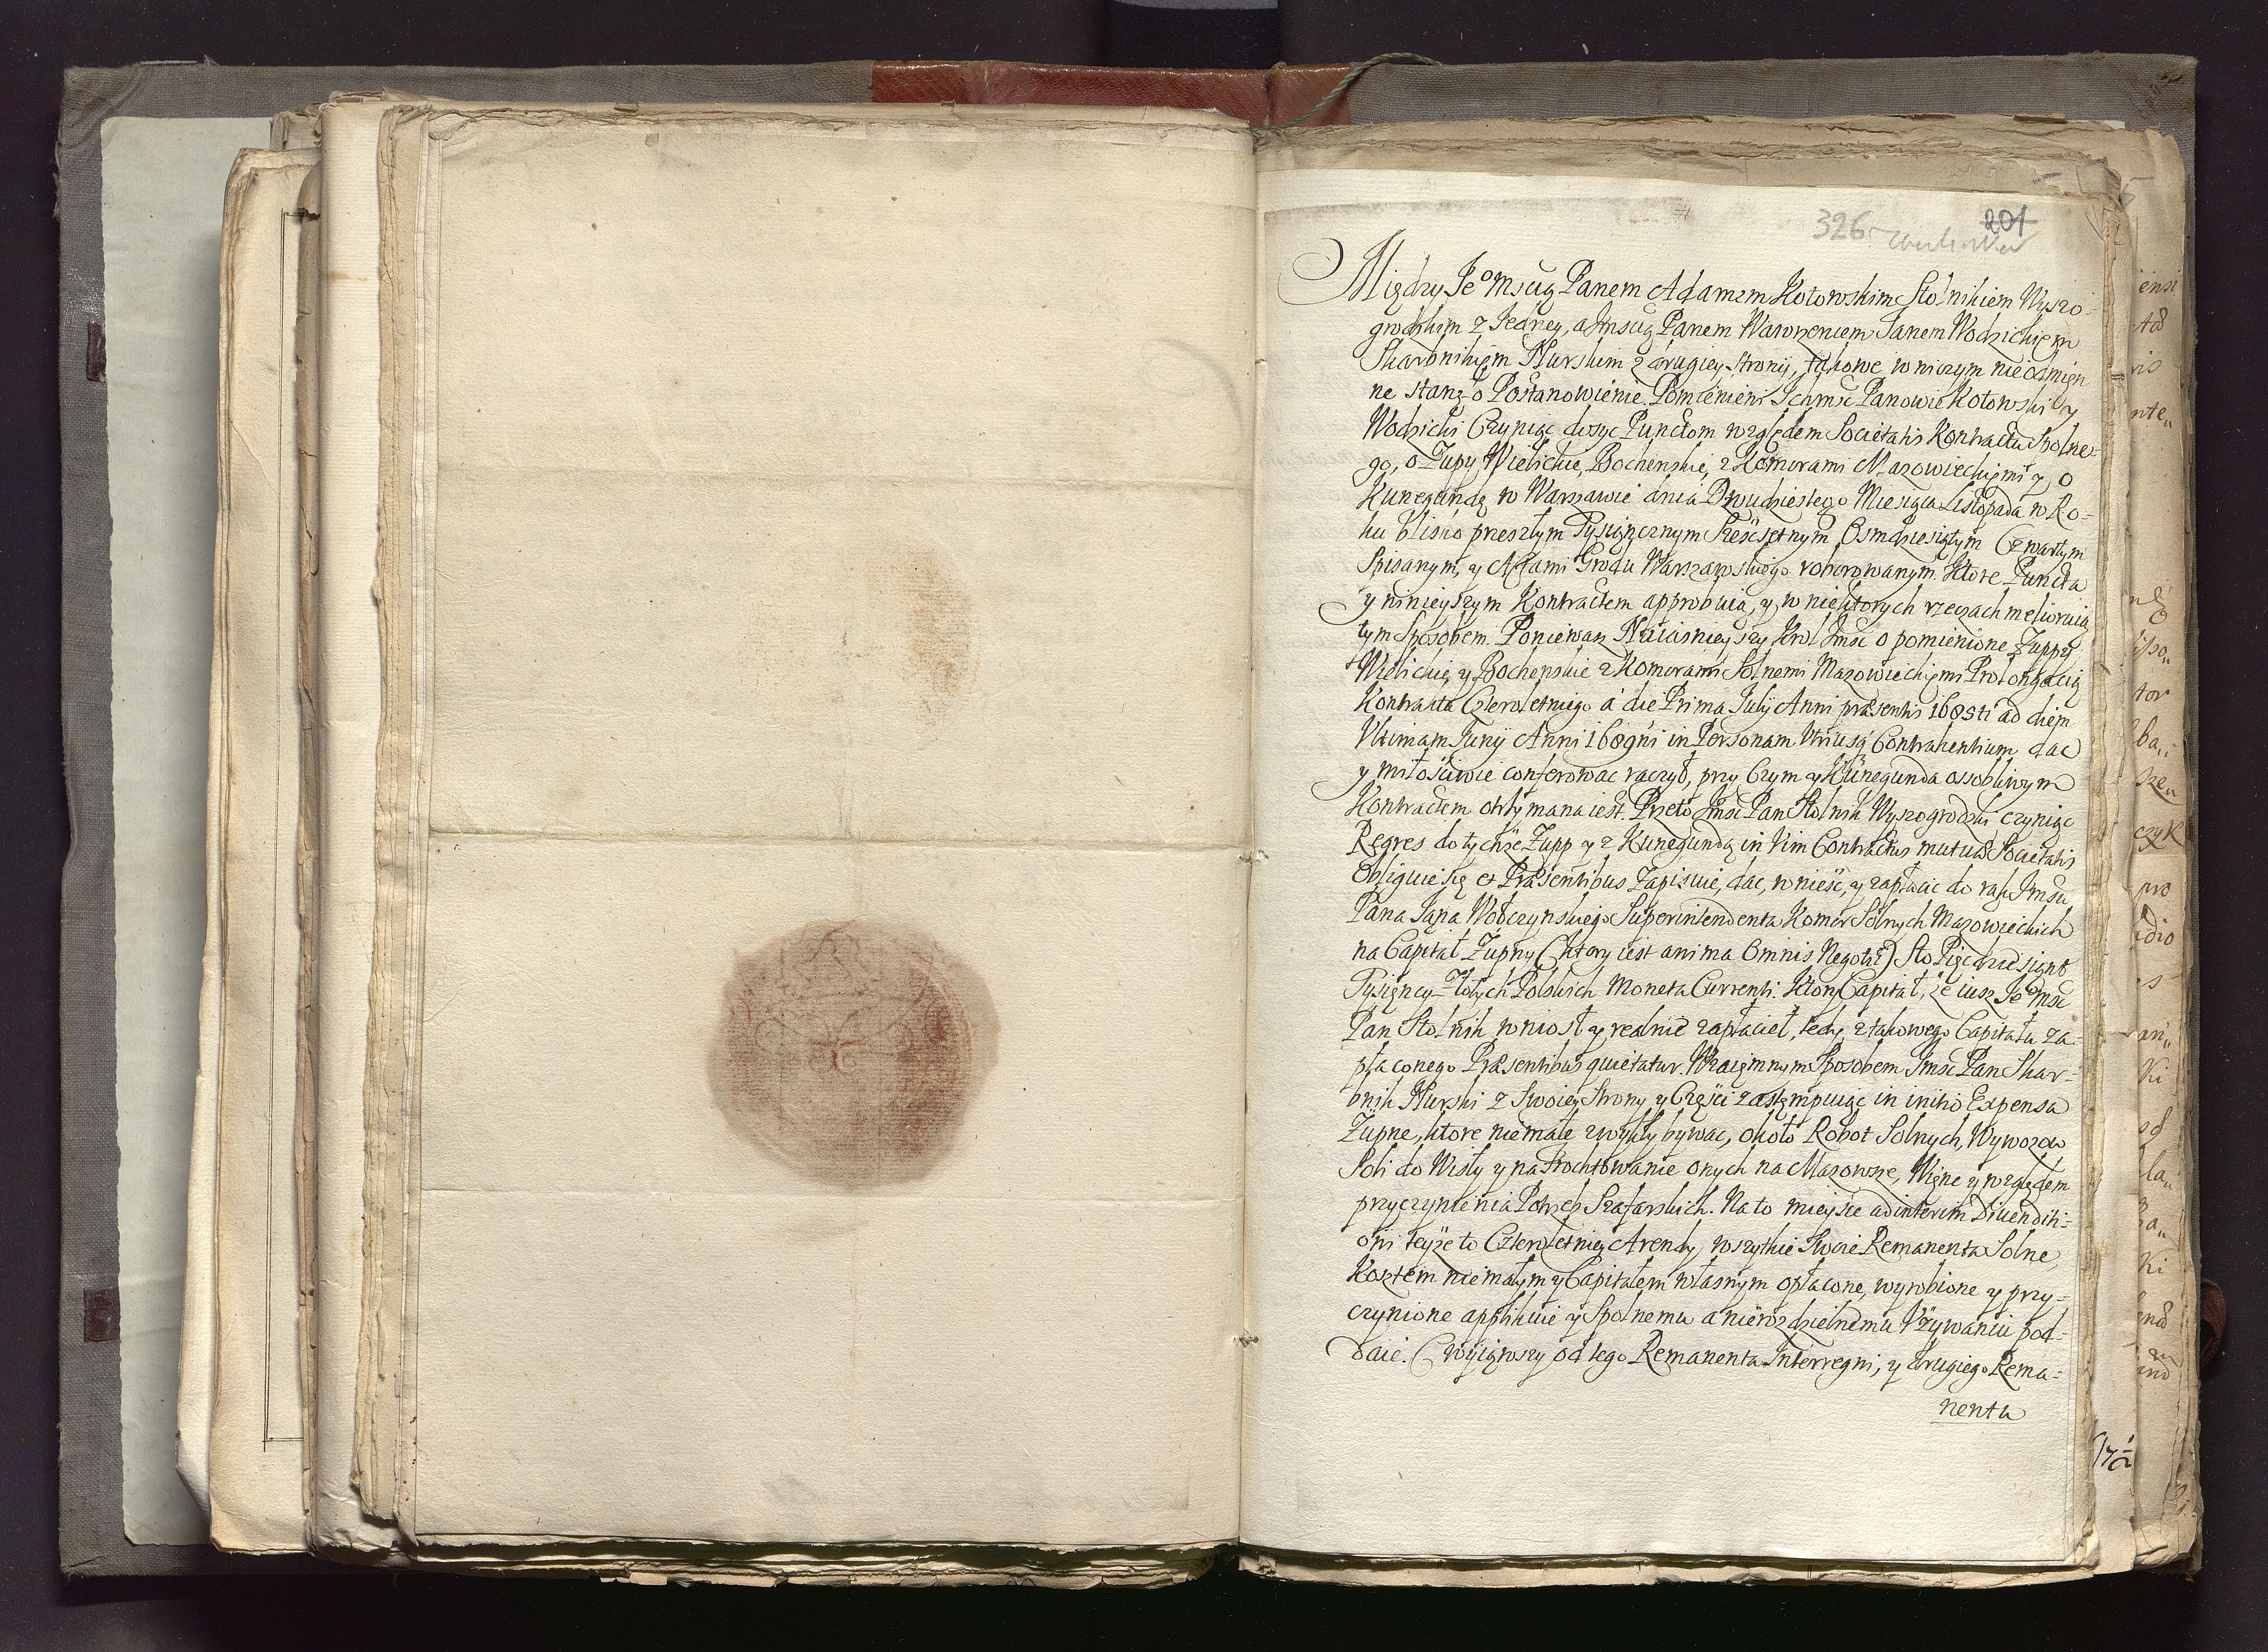 326
201
Między Je͠o Mscią Panem Adamem Kotowskim Stolnikiem Wyszo-
grodzkim z Jedney, a Jmscią Panem Wawrzencem Janem Wodzickiem
Skarbnikiem Nurskim z drugiey strony, takowe w niczym nieodmięn
ne stanęło Postanowienie. Pomienieni Ichmsć Panowie Kotowski y
Wodzicki Czyniąc dosyć Punctom względem Societatis Kontractu Spolne-
go, o Zupy Wielickie, Bochenskie, z Komorami Mazowieckięmi y o
Kunegundę w Warszawie dnia Dwudziestego Miesiąca Listopada w Ro-
ku blisko przeszłym Tysiącznym Sześćsetnym Osmdziesiątym Czwartym
Spisanym, y Actami Grodu Warszawskiego roborowanym. Ktore Puncta
y ninieyszym Kontractem approbuią, y w niektorych rzeczach meliorują
tym sposobem. Poniewasz Naiasnieyszy Krol Jmsc o pomienione Zuppy
Wielickie y Bochenskie z Komorami Solnemi Mazowieckięmi Prolongacią
Kontractu Czteroletniego à die Prima Julij Anni præsentis 1685ti ad diem
Vltimam Junij Anni 1689ni in Personam Vtriusq Contrahentium dac
y miłościwie conferowac raczył, przy Czym y Kunegunda ossobliwym
Kontractem otrzymana iest. Przeto Jmsc Pan Stolnik Wyszogrodzki czyniąc
Regres do tychże Zupp y z Kunegundą in Vim Contractus mutuæ Societatis
Obliguie się et Præsentibus Zapisuie, dac, wnieść, y zapłacic do rąk Jmsci
Pana Jana Wobczynskiego Superintendenta Komor Solnych Mazowieckich
na Capitał Zupny (ktory iest anima Omnis Negotij) Sto Pięcdziesiąt
Tysięncy Złotych Polskich Moneta Currenti. Ktory Capitał, że iusz Je͠o Msc
Pan Stolnik wniosł y realnie zapłacieł, tedy z takowego Capitału za-
płaconego Præsentibus quietatur. Wzaięmnym Sposobem Jmsc Pan Skar-
bnik Nurski z Swoiey Strony y Częsci zastęmpuiąc in initio Expensa
Zupne, ktore niemałe zwykły bywac, około Robot Solnych, Wywozow
Soli do Wisły y na Frochtowanie onych na Mazowsze, Więnc y względem
przyczynienia Potrzeb Szafarskich. Na to mieysce ad interim Divenditi-
oni teyże to Czteroletniey Arendy, wszytkie Swoie Remanenta Solne,
Kosztem niemałym y Capitałem własnym opłacone, wyrobione y przy-
czynione applikuie y Spolnemu a nierozdzielnemu Vżywaniu pod-
daie. (wyiąwszy od tego Remanenta Interregni, y drugiego Rema-
nentu